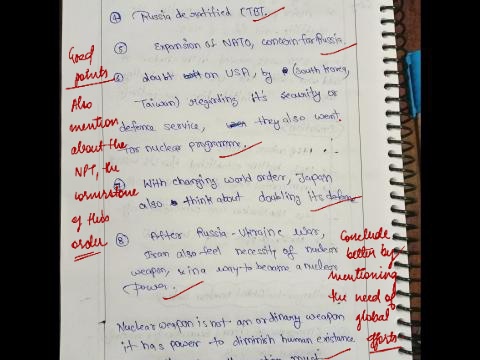 ④ Russia de-ratified CTBT.
⑤ Expansion of NATO, concern for Russia.
⑥ doubt on USA, by (South Korea,
Taiwan) regarding it's security or
defence service, they also want
for nuclear programme.
⑦ With changing world order, Japan
also think about doubling its defense
⑧ After Russia-Ukraine war,
Iran also feel necessity of nuclear
weapon, & in a way to become a nuclear
power.
Nuclear weapon is not an ordinary weapon
it has power to diminish human existance
must
Good
points
Also
mention
about the
NPT, the
cornerstone
of this
order
Conclude
better by
mentioning
the need of
global
efforts